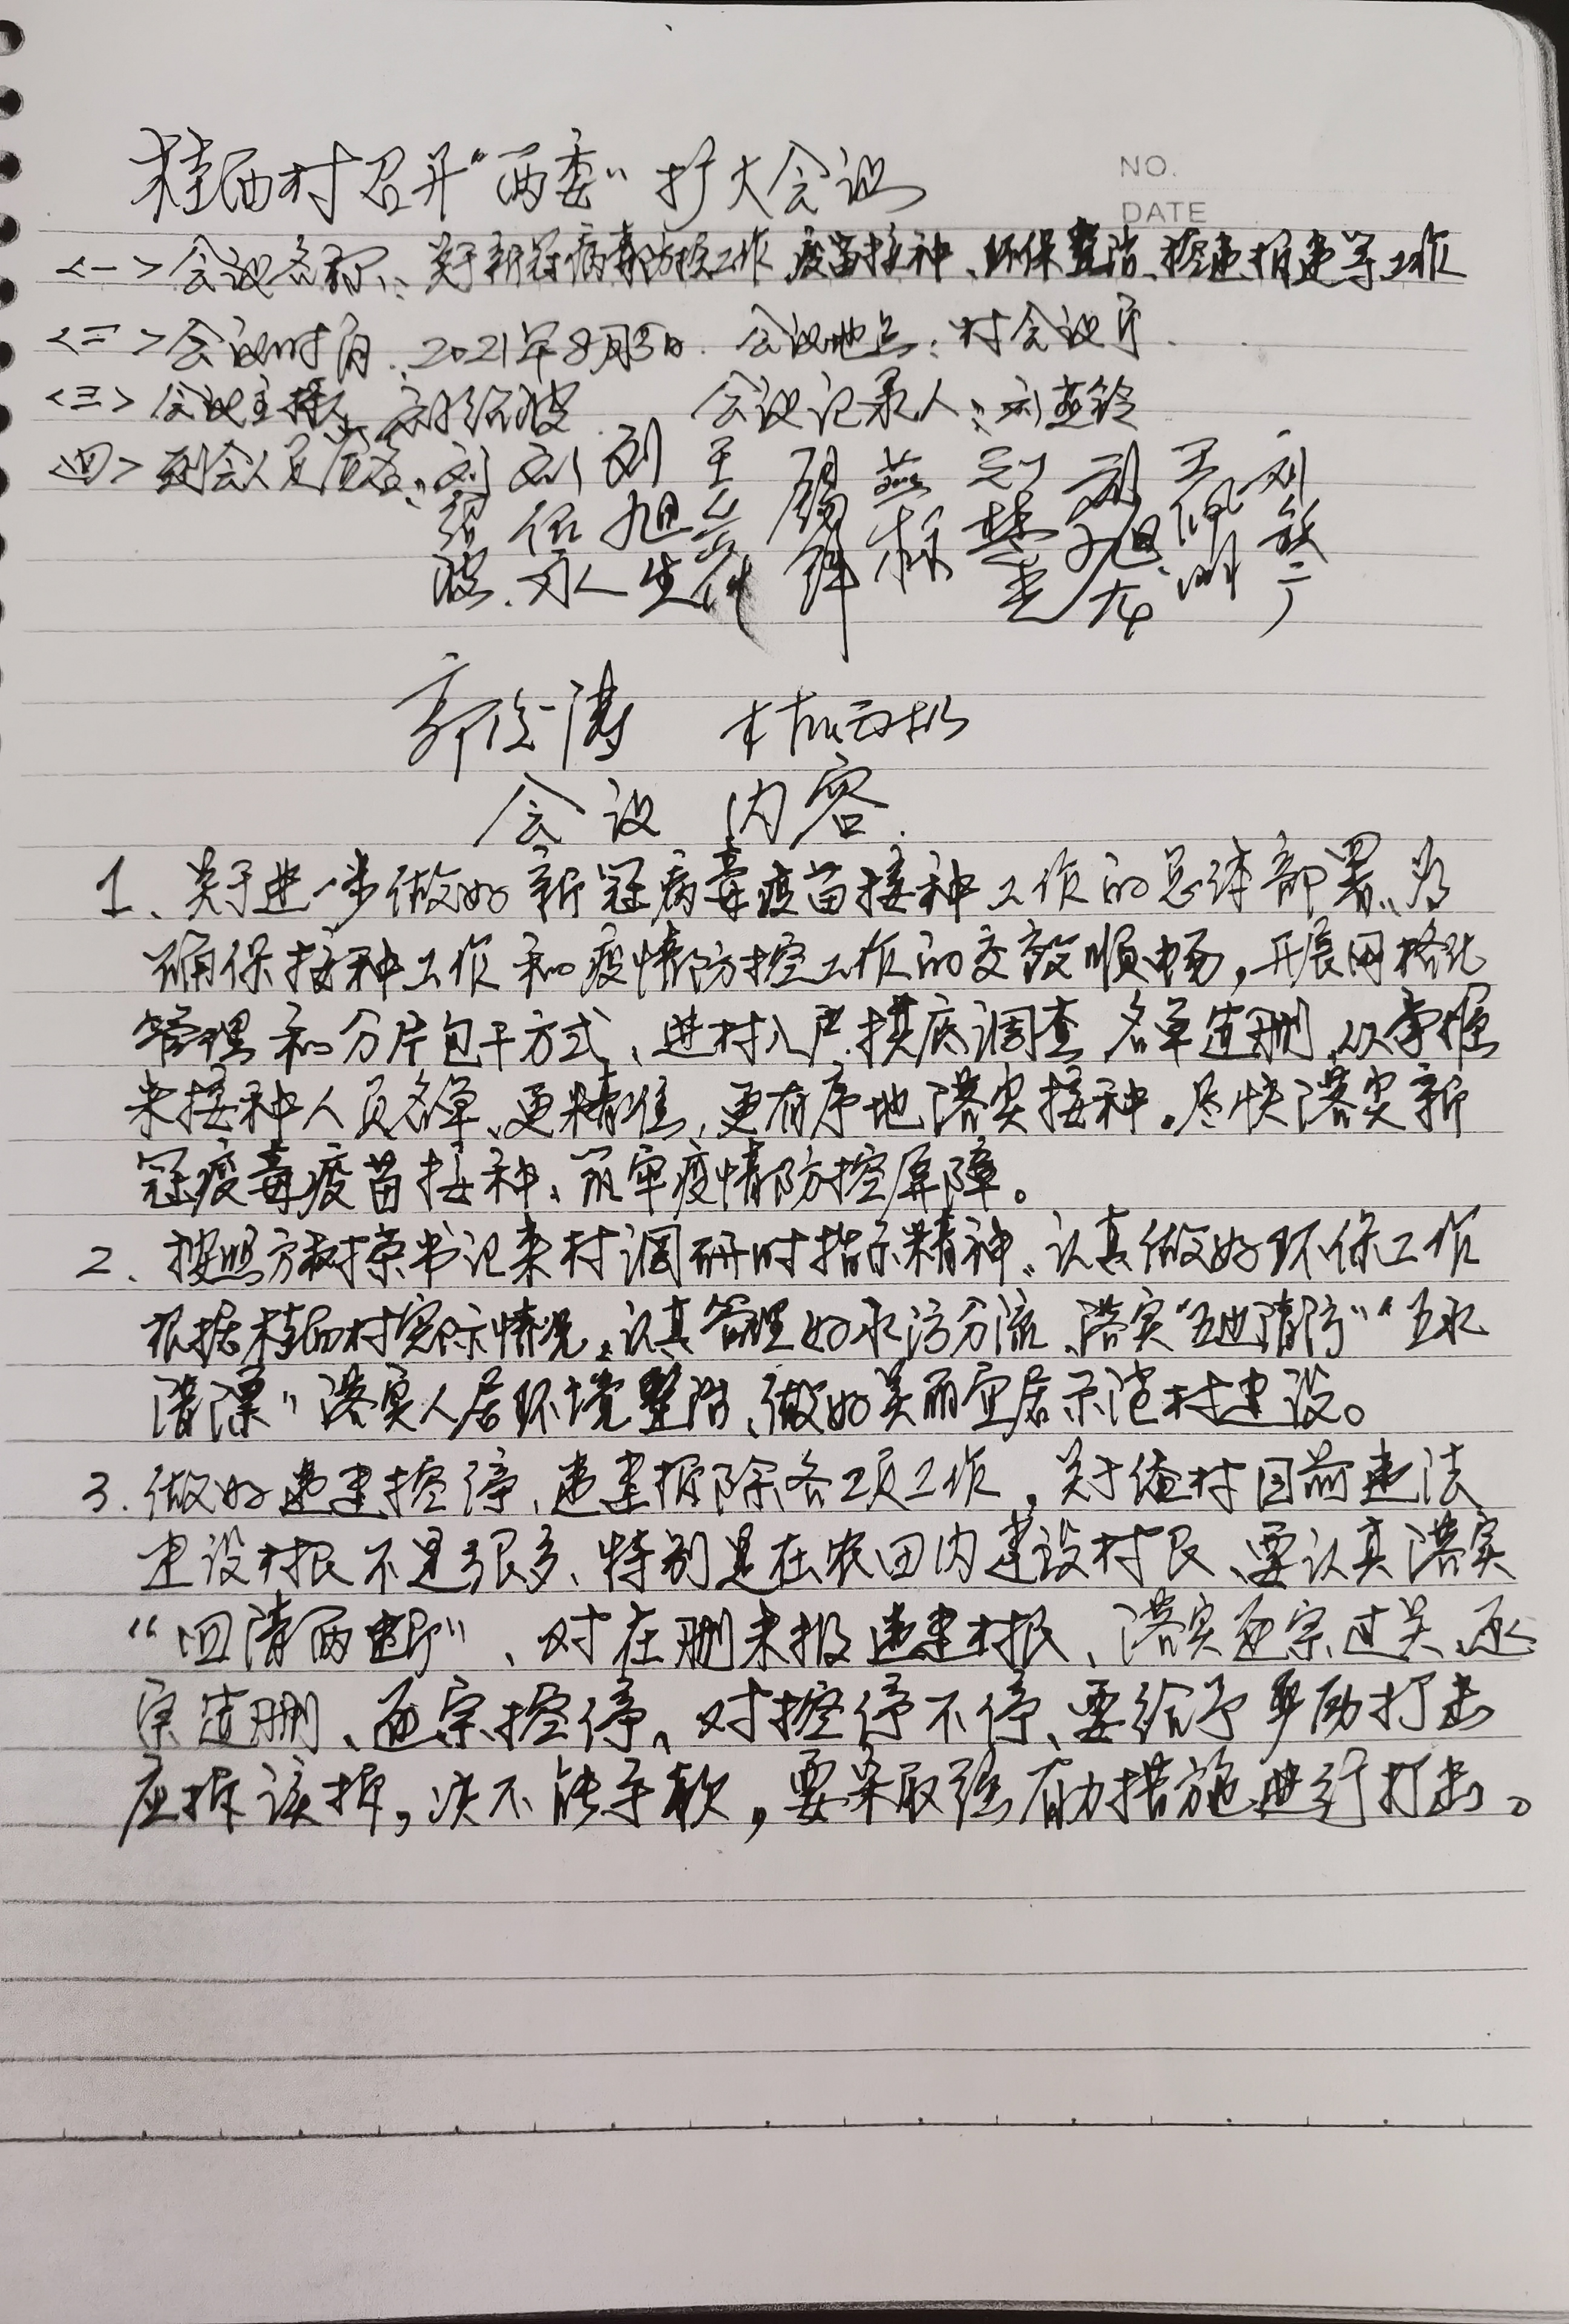 桂西村召开“两委”扩大会议
NO.
DATE
<一>会议名称:关于新冠病毒防控工作 疫苗接种、环保整治、控违拆违等工作
<二>会议时间:2021年8月3日. 会议地点:村会议厅.
<三>会议主持人 刘绍波 会议记录人:刘燕铃
<四>到会人员签名:刘绍波
会议内容.
1、关于进一步做好新冠病毒疫苗接种工作的总体部署、为
确保接种工作和疫情防控工作的交通顺畅,开展网格化
管理和分片包干方式、进村入户摸底调查 名单造册,以掌握
未接种人员名单、更精准,更有序地落实接种。尽快落实新
冠疫毒疫苗接种、筑牢疫情防控屏障。
2、按照方树荣书记来村调研时指示精神、认真做好环保工作
根据桂西村实际情况,认真管理好水污分流、落实“五地清污”“五水
清漂”落实人居环境整治、做好美丽宜居示范村建设。
3.做好违建控停、违建拆除各项工作,关于俺村目前违法
建设村民不是很多、特别是在农田内建设村民、要认真落实
“四清两断”、对在册未报违建村民、落实逐宗过关、逐
宗造册、逐宗控停、对控停不停、要给予 打击
应拆该拆,决不能手软,要采取强有力措施进行打击。